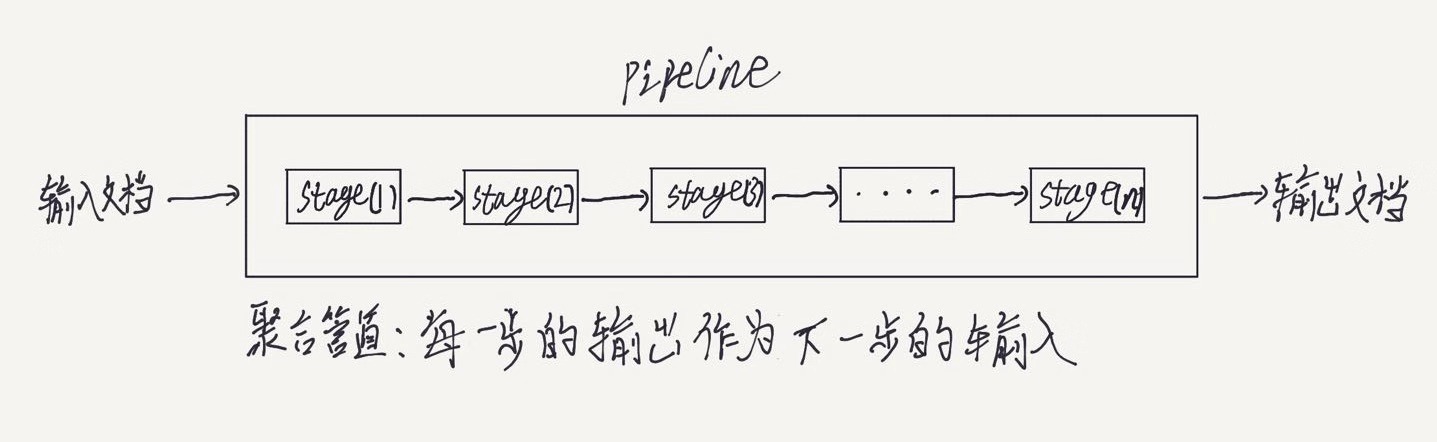 pipeline
输入文档
stage(1)
stage(2)
stage(3)
....
stage(n)
输出文档
聚合管道:每一步的输出作为下一步的输入